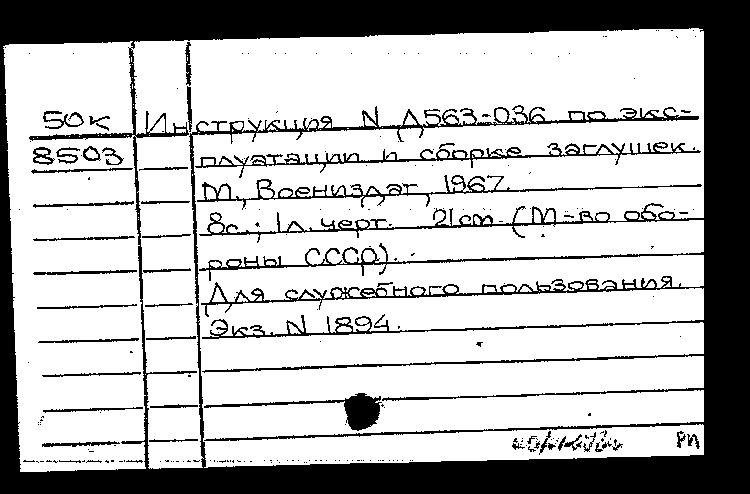 50к Инструкция N Д563-036 по экс-
8503 плуатации и сборке заглушек.
М., Воениздат, 1967.
8с.; 1л. черт. 21cm (М-во обо-
роны СССР).
Для служебного пользования.
Экз. N 1894.
РП